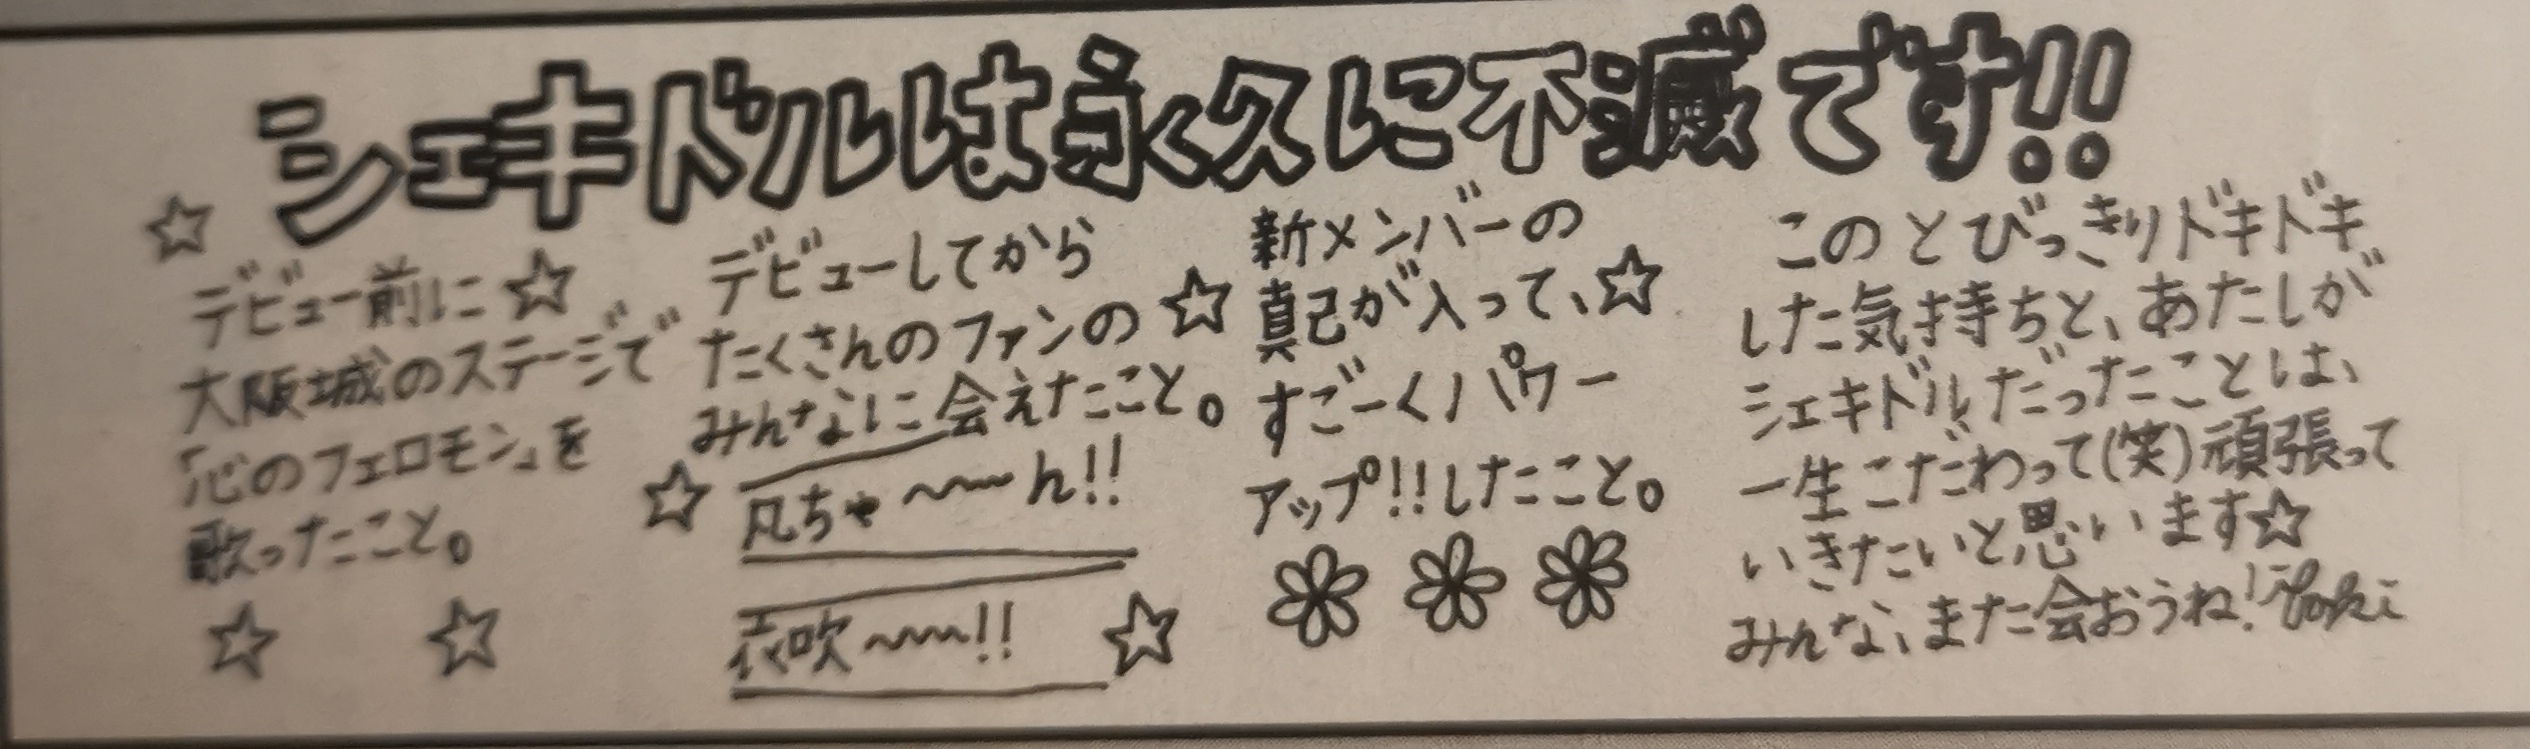 シェキドルは永久に不滅です!!
デビュー前に☆
大阪城のステージで
「心のフェロモン」を
歌ったこと。
デビューしてから
たくさんのファンの☆
みんなに会えたこと。
☆凡ちゃ〜〜ん!!
衣吹〜〜〜!!☆
新メンバーの
真己が入って、☆
すごーくパワー
アップ!!したこと。
このとびっきりドキドキ
した気持ちと、あたしが
シェキドルだったことは、
一生こだわって(笑)頑張って
いきたいと思います☆
みんな、また会おうね!